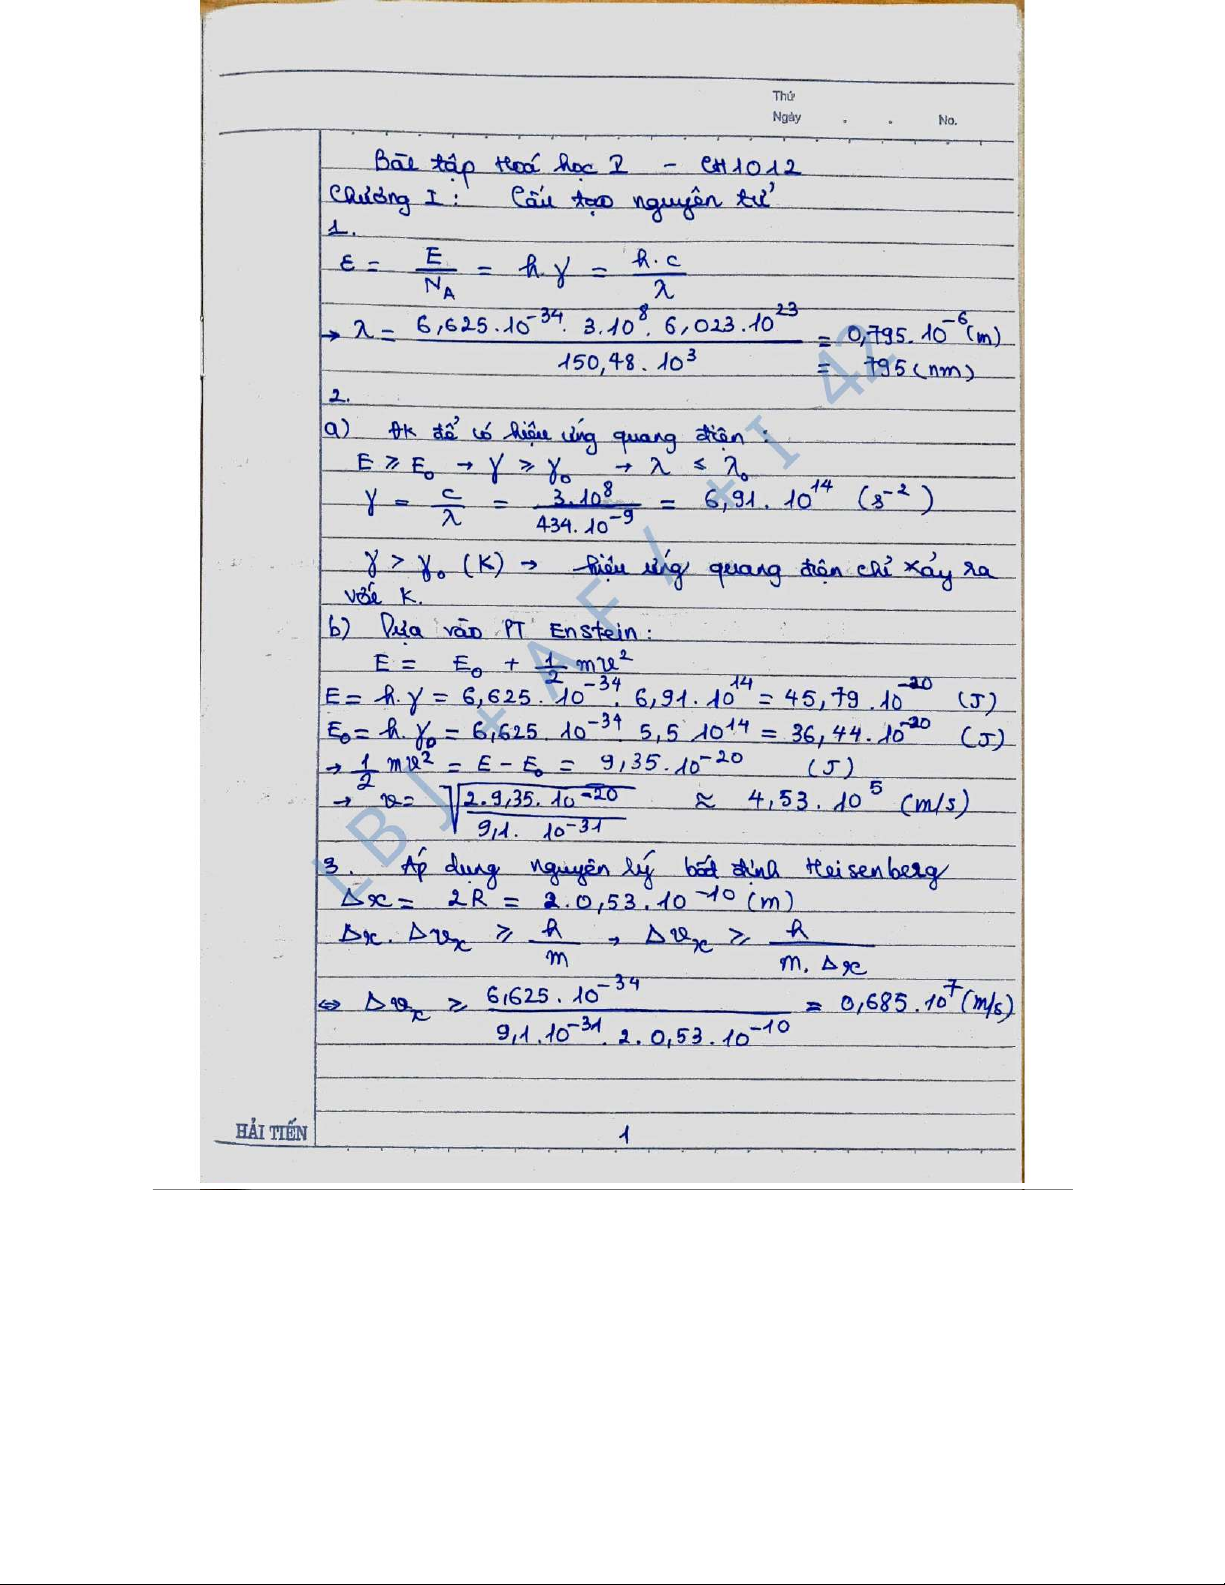 Thứ
Ngày . . No.
Bài tập Hoá học I - CH1012
Chương I : Cấu tạo nguyên tử
1.
ε = E/N_A = h.γ = h.c/λ
→ λ = 6,625.10^-34. 3.10^8. 6,023.10^23 / 150,48.10^3 = 0,795.10^-6 (m)
= 795 (nm)
2.
a) Đk để có hiệu ứng quang điện :
E ≥ E₀ → γ ≥ γ₀ → λ ≤ λ₀
γ = c/λ = 3.10^8 / 434.10^-9 = 6,91.10^14 (s^-2)
γ > γ₀ (K) → hiệu ứng quang điện chỉ xảy ra
với K.
b) Dựa vào PT Enstein :
E = E₀ + 1/2 mv²
E = h.γ = 6,625.10^-34. 6,91.10^14 = 45,79.10^-20 (J)
E₀ = h.γ₀ = 6,625.10^-34 5,5 10^14 = 36,44.10^-20 (J)
→ 1/2 mv² = E - E₀ = 9,35.10^-20 (J)
→ v = √(2.9,35.10^-20 / 9,1.10^-31) ≈ 4,53.10^5 (m/s)
3. Áp dụng nguyên lý bất định Heisenberg
Δx = 2R = 2.0,53.10^-10 (m)
Δx.Δv_x ≥ h/m → Δv_x ≥ h/(m.Δx)
⇔ Δv_x ≥ 6,625.10^-34 / 9,1.10^-31. 2.0,53.10^-10 = 0,685.10^7 (m/s)
HẢI TIẾN 1